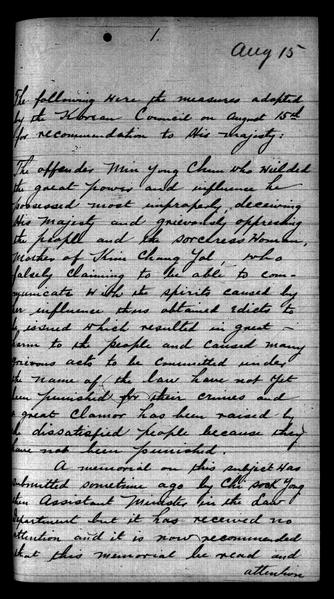 1.
Aug 15
The following were the measures adopted
by the Korean Council on August 15th
for recommendation to His Majesty:
The offender Min Yong Chun who wielded
the great power and influence he
possessed most improperly, deceiving
His Majesty and grievously oppressing
the people and the sorceress Woman,
Mother of Kim Chang Yol, who
falsely claiming to be able to com-
municate with the spirits caused by
her influence thus obtained Edicts to
be issued which resulted in great
harm to the people and caused many
grievous acts to be committed under
the name of the law have not yet
been punished for their crimes and
a great clamor has been raised by
the dissatisfied people because they
have not been punished.
A memorial on this subject was
submitted sometime ago by Chi Sock Yong
then Assistant Minister in the Law
Department but it has received no
attention and it is now recommended
that this memorial be read and
attention